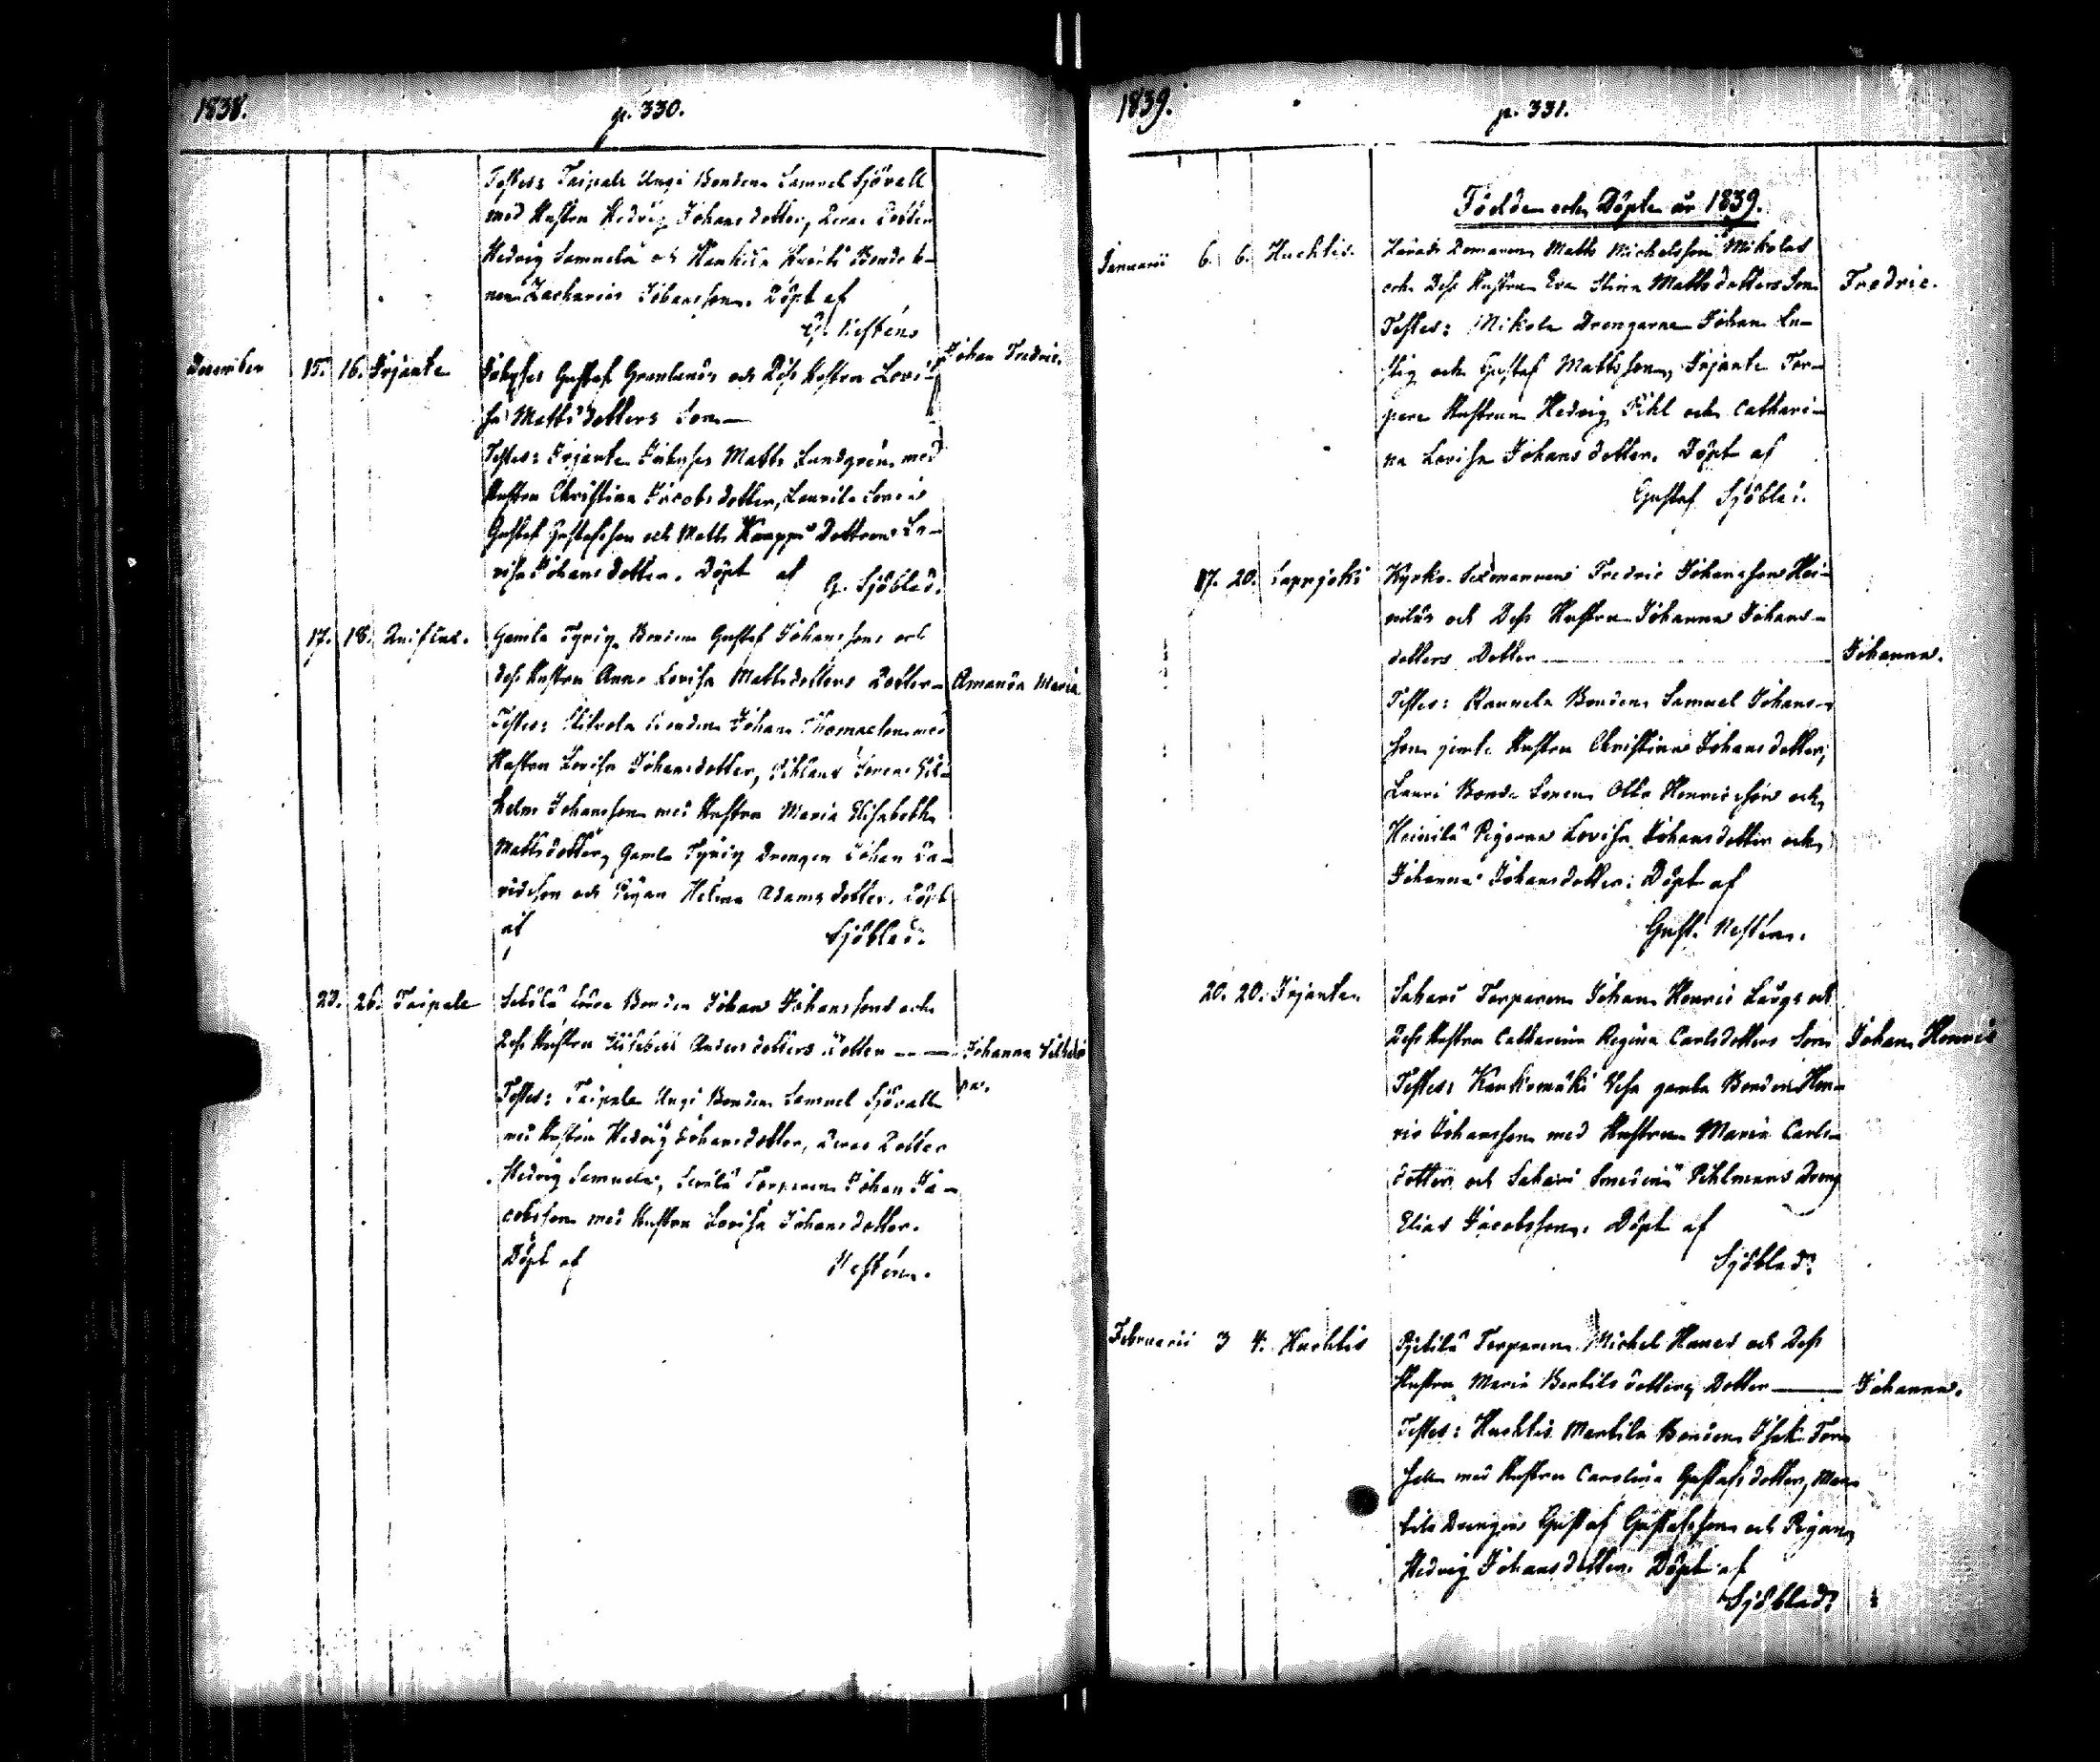 1838.
p. 330.
Testes: Taipale Ungi Bonden Samuel Sjövall
med Hustru Hedvig Johansdotter, deras Dotter
Hedvig Samuela och Bonde
Zacharias Johansson. Döpt af
G. Nestén
December 15. 16. Irjante Gustaf Granlunds och Dess Hustru Lovi- Johan Fredric.
sa Mattsdotters Son —
Testes: Irjante Matts Lundgrén med
Hustru Christina Jacobsdotter, Laurila
Gustaf Gustafsson och Matts Kauppi Dottren Lo-
visa Johansdotter. Döpt af
G. Sjöblad.
17. 18. Gamla Tyrig Bonden Gustaf Johanssons och
dess Hustru Anna Lovisa Mattsdotters Dotter — Amanda Maria
Testes: Bonden Johan Thomasson med
Hustru Lovisa Johansdotter, Vil-
helm Johansson med Hustru Maria Elisabeth
Mattsdotter, Gamla Tyrig Drengen Johan Da-
vidsson och Pigan Helena Adamsdotter. Döpt
af Sjöblad.
23. 26. Taipale Bonden Johan Johanssons och
Dess Hustru Andersdotters Dotter — Johanna Vilhelmi
na.
Testes: Taipale Ungi Bonden Samuel Sjövall
med Hustru Hedvig Johansdotter, deras Dotter
Hedvig Samuela, Torparen Johan Ja-
cobsson med Hustru Lovisa Johansdotter.
Döpt af Nestén.
1839.
p. 331.
Födde och Döpte år 1839.
Januarii 6. 6. Huchtis. Härads Domaren Matts Michelsson Mikolas
och Dess Hustru Eva Stina Mattsdotters Son Fredric.
Testes: Mikola Drengarne Johan Lu-
stig och Gustaf Mattsson, Irjante Tor-
pare Hustrun Hedvig Pihl och Cathari-
na Lovisa Johansdotter. Döpt af
Gustaf Sjöblad.
17. 20. Lappijoki Kyrko-Sexmannens Fredric Johansson Hei-
niläs och Dess Hustru Johanna Johans-
dotters Dotter — Johanna.
Testes: Rannela Bonden Samuel Johans-
son jemte Hustru Christina Johansdotter,
Lauri Bonde Sonen Otto Henricsson och
Heinilä Pigorna Lovisa Johansdotter och
Johanna Johansdotter: Döpt af
Gust. Nestén.
20. 20. Irjante. Sahari Torparen Johan Henric Laugs och
Dess Hustru Catharina Regina Carlsdotters Son Johan Henric
Testes: Kaukomäki Vesa gamla Bonden Hen-
ric Johansson med Hustrun Maria Carls-
dotter och Sahari Smeden Pihlmans Dreng
Elias Jacobsson. Döpt af
Sjöblad.
Februarii 3 4. Huchtis Pjetilä Torparen Michel Hanes och Dess
Hustru Maria Bertilsdotters Dotter — Johanna.
Testes: Huchtis Martila Bonden Isak Forss-
sell med Hustru Carolina Gustafsdotter, Mar-
tila Drengen Gustaf Gustafsson och Pigan
Hedvig Johansdotter. Döpt af
Sjöblad.